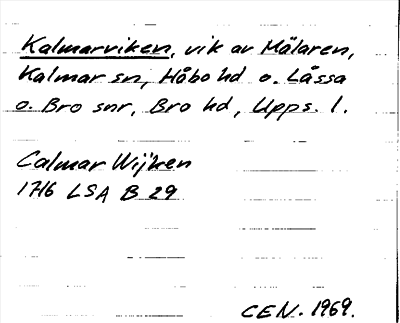 Kalmarviken, vik av Mälaren,
Kalmar sn, Håbo hd o. Låssa
o. Bro snr, Bro hd, Upps. l.
Calmar Wijken
1716 LSA B 29
CEN. 1969.